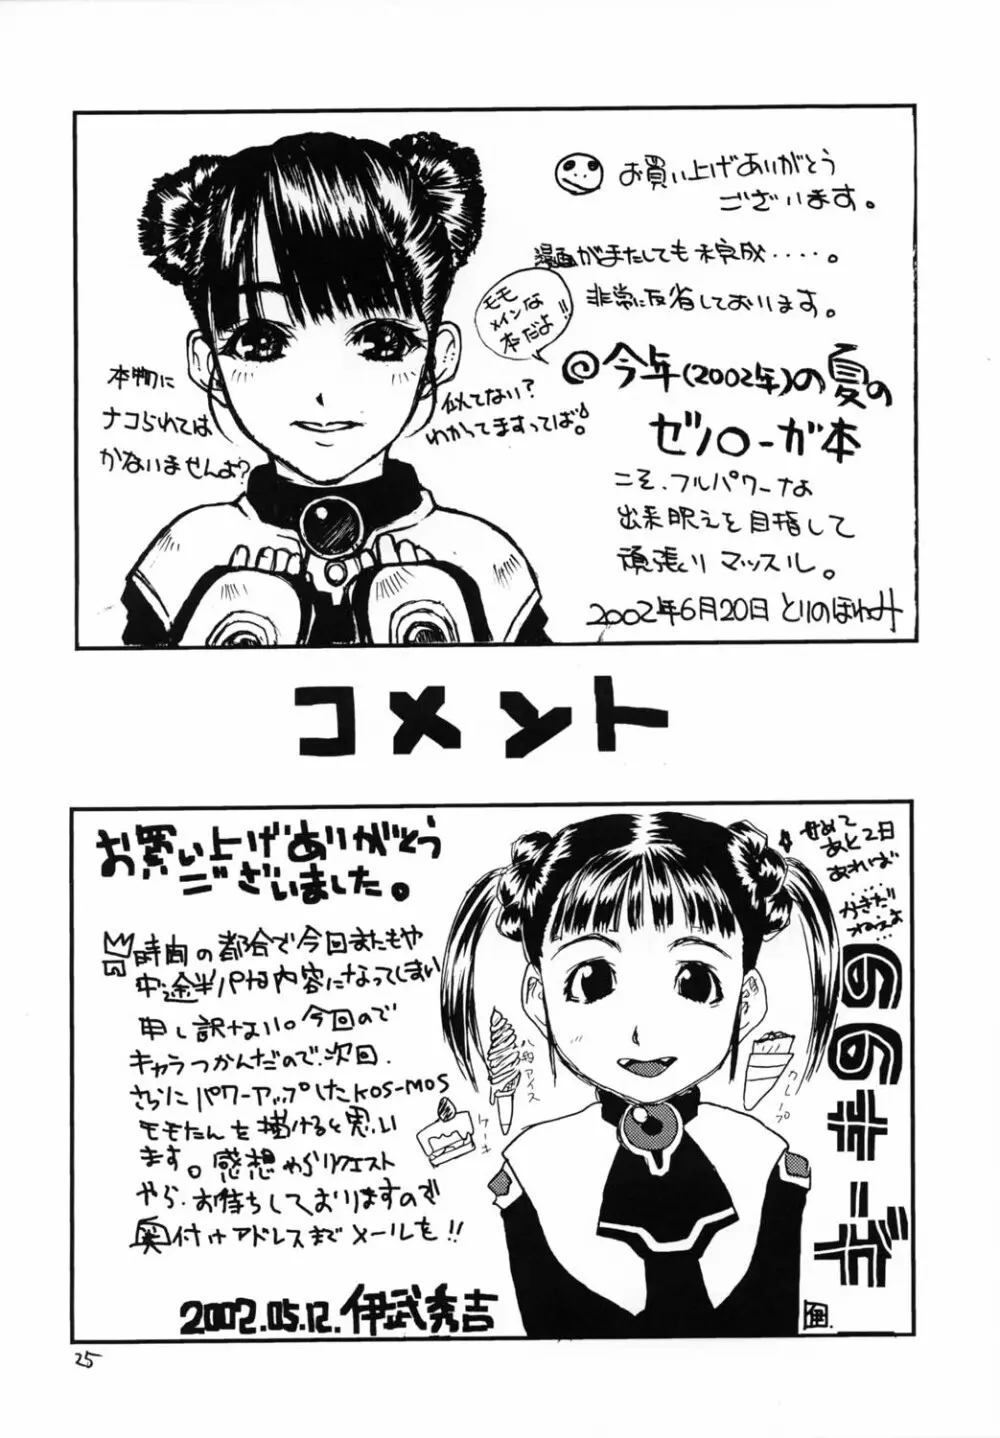 お買い上げありがとう
ございます。
漫画がまたしても未完成・・・・。
非常に反省しております。
モモ
メインな
本だよ!!
◎今年(2002年)の夏の
ゼノ○ーガ本
こそ、フルパワーな
出来映えを目指して
頑張りマッスル。
2002年6月20日 とりのほねみ
本物に
ナコられては
かないませんよ?
似てない?
わかってますってば。
コメント
お買い上げありがとう
ございました。
時間の都合で今回またもや
中途半パな内容になってしまい
申し訳ない。今回ので
キャラつかんだので、次回、
さらにパワーアップしたKOS-MOS
モモたんを描けると思い
ます。感想やらリクエスト
やら、お待ちしておりますので
奥付けアドレスまでメールを!!
2002.05.12.伊武秀吉
せめて
あと2日
あれば
アイス
ケーキ
クレープ
25